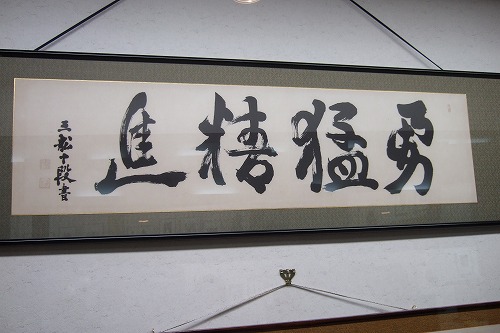 勇猛精進
三船十段書